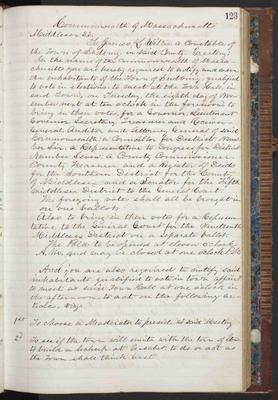 123
Commonwealth of Massachusetts
Middlesex SS.
To James R. Willis a Constable of
the Town of Sudbury in Said County Greeting:
In the name of the Commonwealth of Massa-
chusetts you are hereby required to notify and warn
the inhabitants of the Town of Sudbury, qualified
to vote in elections to meet at the Town Hall, in
said town, on Tuesday, the eighth day of Nov-
ember next at ten o'clock in the forenoon to
bring in their votes for a Governor, Lieutenant
Governor, Secretary, Treasurer and Receiver
General, Auditor, and Attorney General of said
Commonwealth a Councillor for District Num-
ber Six. a Representative to Congress for District
Number Seven. A County Commissioner.
County Treasurer and a Register of Deeds
for the Southern District for the County
of Middlesex and a Senator for the Fifth
Middlesex District to the General Court.
The foregoing votes shall all be brought in
on one ballot.
Also to bring in their votes for a Represen-
tative to the General Court for the
Middlesex District on a separate ballot.
The Polls to be opened at eleven o'clock
A.M. and may be closed at one o'clock P.M.
And you are also required to notify said
inhabitants qualified to act in town affairs
to meet at said Town Hall at one o'clock in
the afternoon to act on the following ar-
ticles, viz:
1st To choose a Moderator to preside in said Meeting
2d To see if the town will unite with the town of
to build a lockup at Assabet. to do or act as
the Town shall think best.